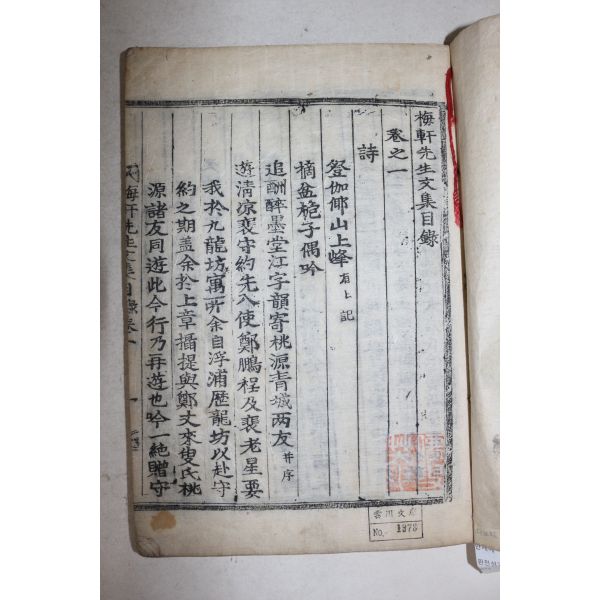 梅軒先生文集目錄
卷之一
詩
登伽倻山上峰 有上記
摘盆梔子偶吟
追酬醉墨堂江字韻寄桃源青城两友 并序
遊清凉裴守約先入使鄭鵬程及裴老星要
我於九龍坊寓所余自浮浦歷龍坊以赴守
約之期盖余於上章攝提與鄭丈來叟氏桃
源諸友同遊此今行乃再遊也吟一絶贈守
梅軒先生文集目錄卷一
No. 1978